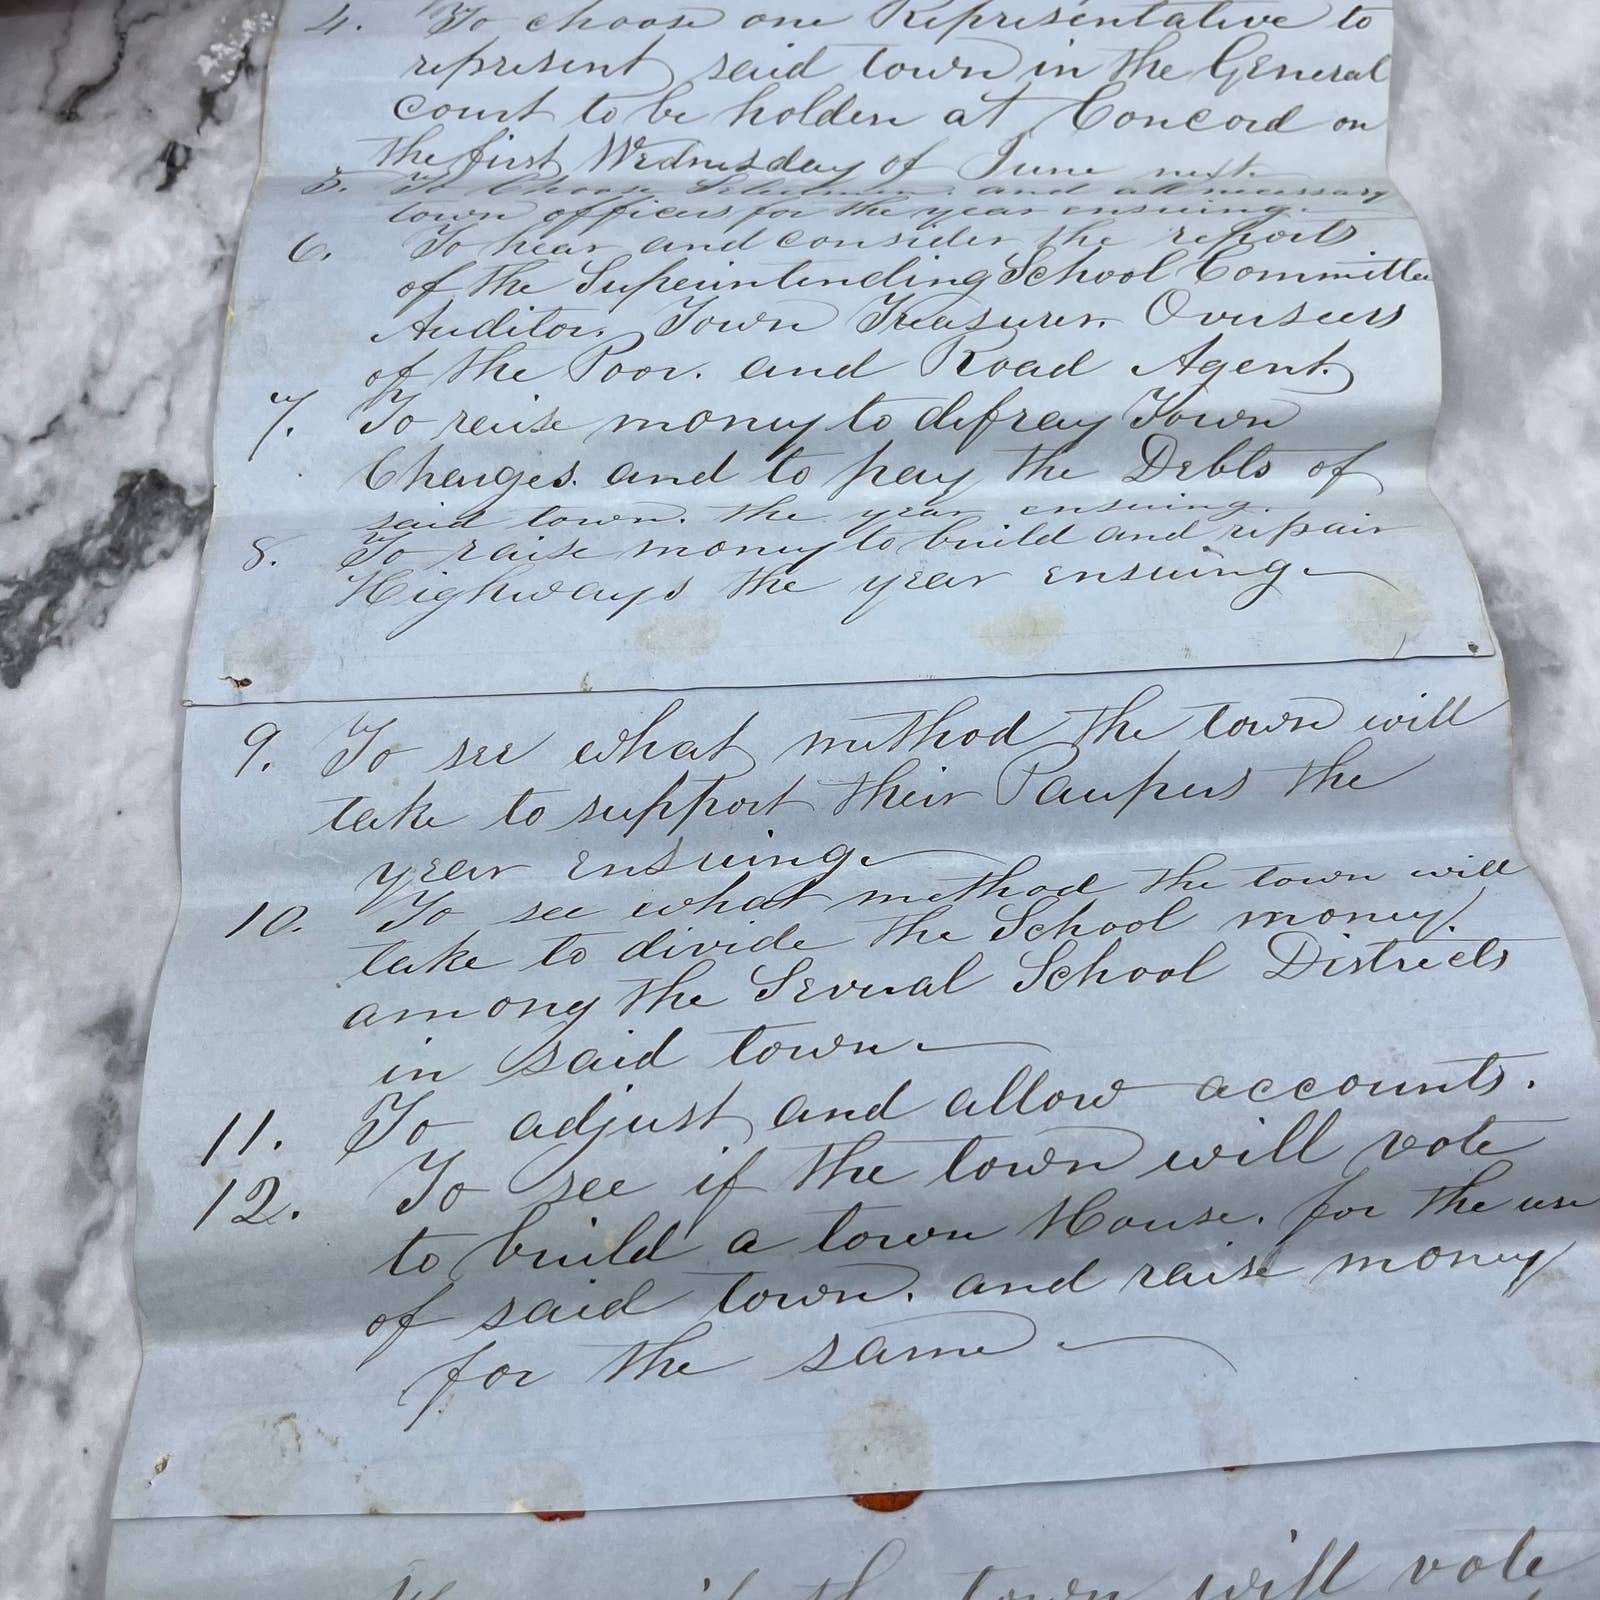 4. To choose one Representative to
represent said town in the General
Court to be holden at Concord on
the first Wednesday of June next.
5. To Choose Selectmen. and all necessary
town officers for the year ensuing.
6. To hear and consider the reports
of the Superintending School Committee
Auditor. Town Treasurer. Overseers
of the Poor. and Road Agent.
7. To raise money to defray Town
Charges. and to pay the Debts of
said town. the year ensuing.
8. To raise money to build and repair
Highways the year ensuing.
9. To see what method the town will
take to support their Paupers the
year ensuing.
10. To see what method the town will
take to divide the School money.
among the Several School Districts
in said town.
11. To adjust and allow accounts.
12. To see if the town will vote
to build a town House. for the use
of said town. and raise money
for the same.
if the town will vote